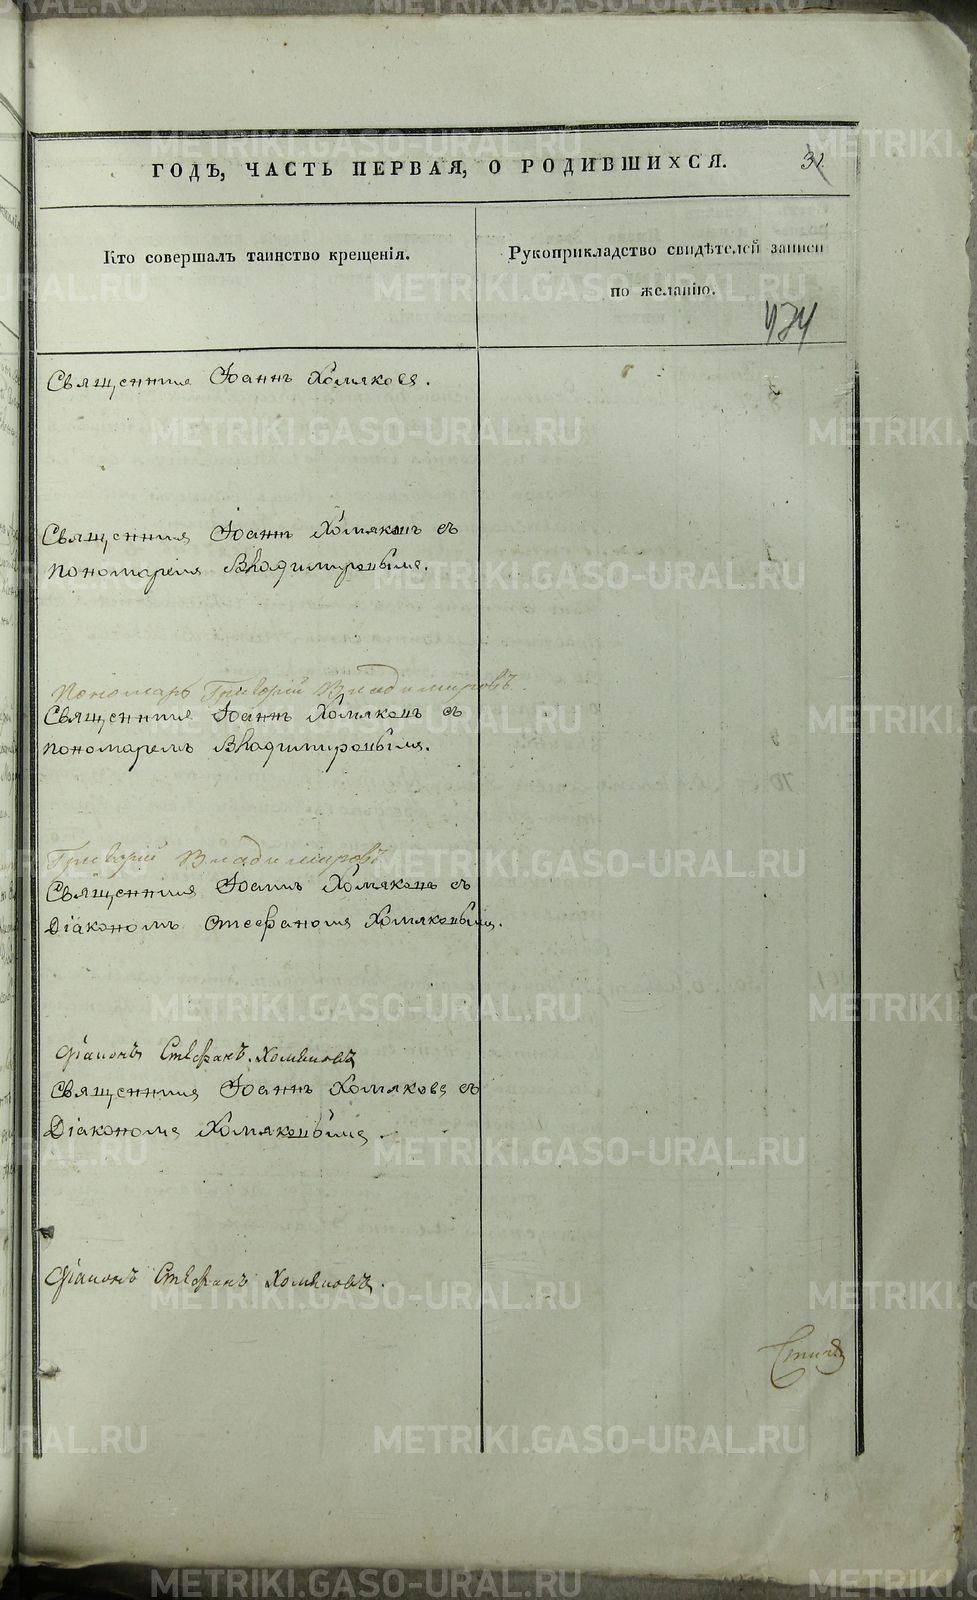 ГОДЪ, ЧАСТЬ ПЕРВАЯ, О РОДИВШИХСЯ.
31
Кто совершалъ таинство крещенія.
Рукоприкладство свидѣтелей записи
по желанію.
Священникъ Іоаннъ Хомяковъ.
Священникъ Іоаннъ Хомяковъ съ
пономаремъ Владимировымъ.
Пономарь Григорій Владимировъ.
Священникъ Іоаннъ Хомяковъ съ
пономаремъ Владимировымъ.
Григорій Владимировъ
Священникъ Іоаннъ Хомяковъ съ
Діакономъ Стефаномъ Хомяковымъ.
Діаконъ Стефанъ Хомяковъ
Священникъ Іоаннъ Хомяковъ съ
Діакономъ Хомяковымъ.
Діаконъ Стефанъ Хомяковъ.
METRIKI.GASO-URAL.RU